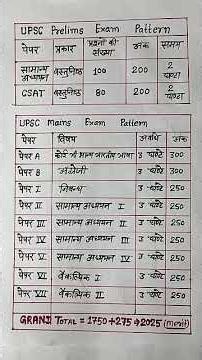 UPSC Prelims Exam Pattern
पेपर प्रकार प्रश्नों की संख्या अंक समय
सामान्य अध्ययन वस्तुनिष्ठ 100 200 2 घण्टा
CSAT वस्तुनिष्ठ 80 200 2 घण्टा
UPSC Mains Exam Pattern
पेपर विषय अवधि अंक
पेपर A कोई भी मान्य भारतीय भाषा 3 घण्टे 300
पेपर B अंग्रेजी 3 घण्टे 300
पेपर I निबन्ध 3 घण्टे 250
पेपर II सामान्य अध्ययन I 3 घण्टे 250
पेपर III सामान्य अध्ययन II 3 घण्टे 250
पेपर IV सामान्य अध्ययन III 3 घण्टे 250
पेपर V सामान्य अध्ययन IV 3 घण्टे 250
पेपर VI वैकल्पिक I 3 घण्टे 250
पेपर VII वैकल्पिक II 3 घण्टे 250
GRAND TOTAL = 1750+275 → 2025 (Merit)